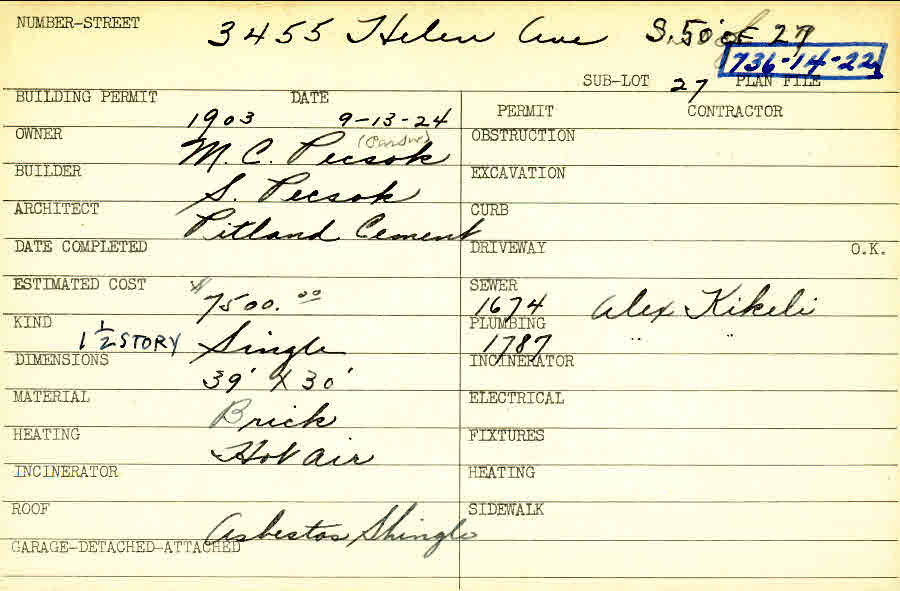 NUMBER-STREET 3455 Helen Ave S. 50' of 27
736-14-22
SUB-LOT 27 PLAN FILE
BUILDING PERMIT 1903 DATE 9-13-24
PERMIT CONTRACTOR
OWNER M. C. Pecsok
OBSTRUCTION
BUILDER S. Pecsok
EXCAVATION
ARCHITECT Pitland Cement
CURB
DATE COMPLETED
DRIVEWAY O.K.
ESTIMATED COST $7500.00
SEWER 1674 Alex Kikeli
KIND 1 1/2 STORY Single
PLUMBING 1787 " "
DIMENSIONS 39' X 30'
INCINERATOR
MATERIAL Brick
ELECTRICAL
HEATING Hot air
FIXTURES
INCINERATOR
HEATING
ROOF Asbestos Shingle
SIDEWALK
GARAGE-DETACHED-ATTACHED